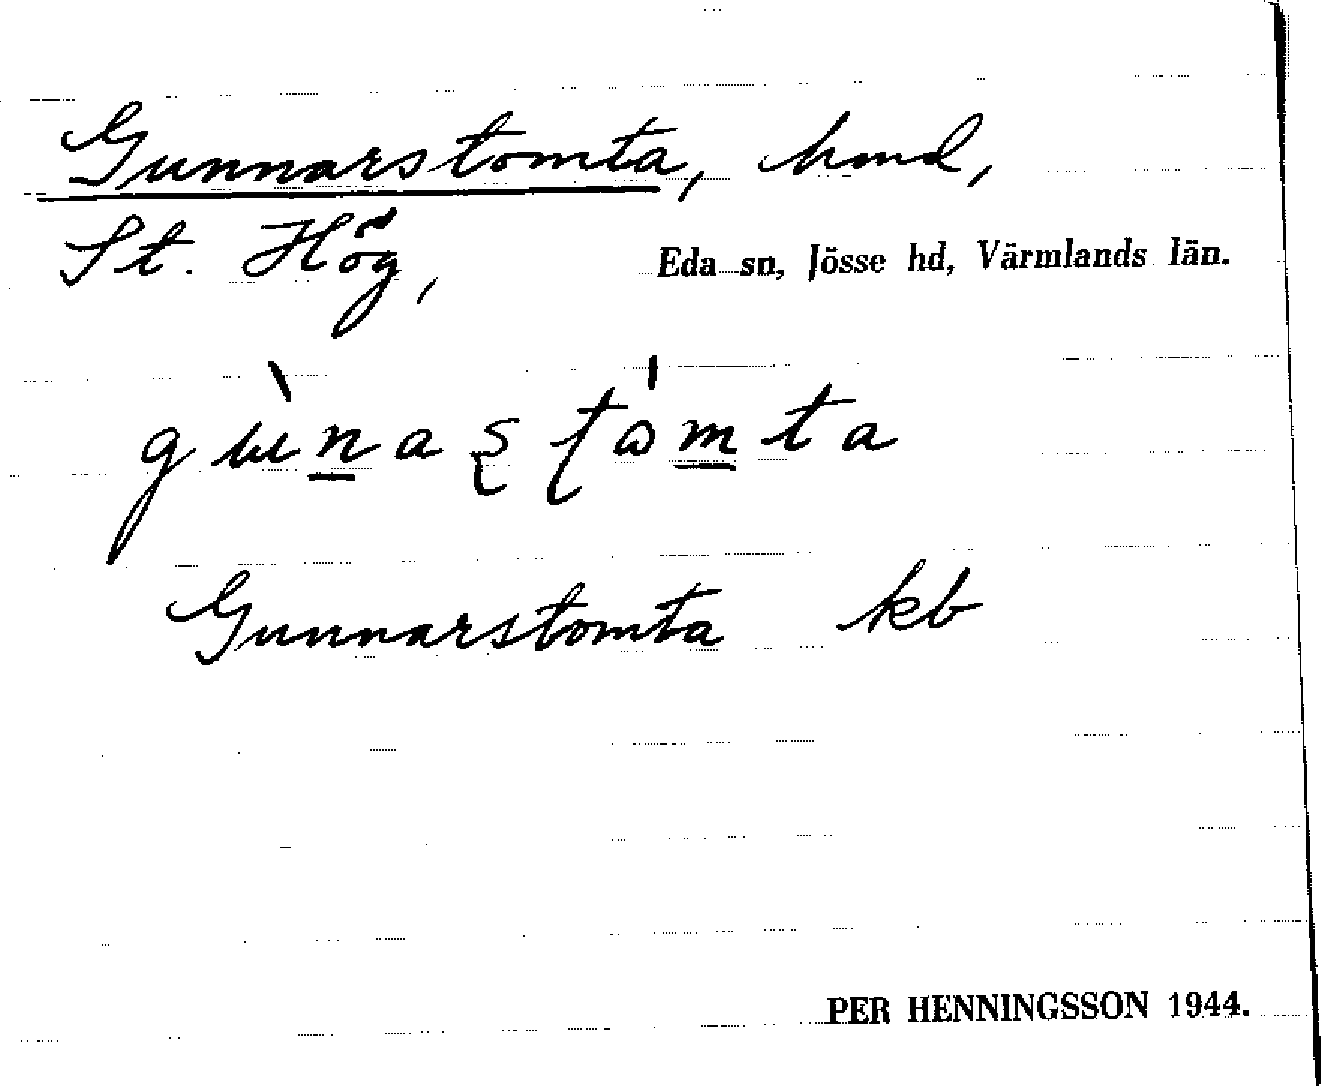 Gunnarstomta, hmd,
St. Hög, Eda sn, Jösse hd, Värmlands län.
Gunnarstomta kb
PER HENNINGSSON 1944.